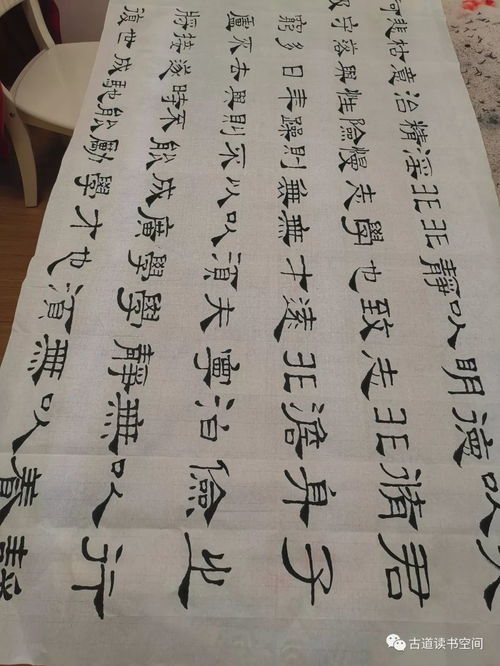 夫君子之行靜
以脩身儉以養
德非澹泊無以
明志非寧靜無
以致遠夫學須
靜也才須學也
非學無以廣才
非志無以成學
淫慢則不能勵
精險躁則不能
治性年與時馳
意與日去遂成
枯落多不接世
悲守窮廬將復
何
古道读书空间